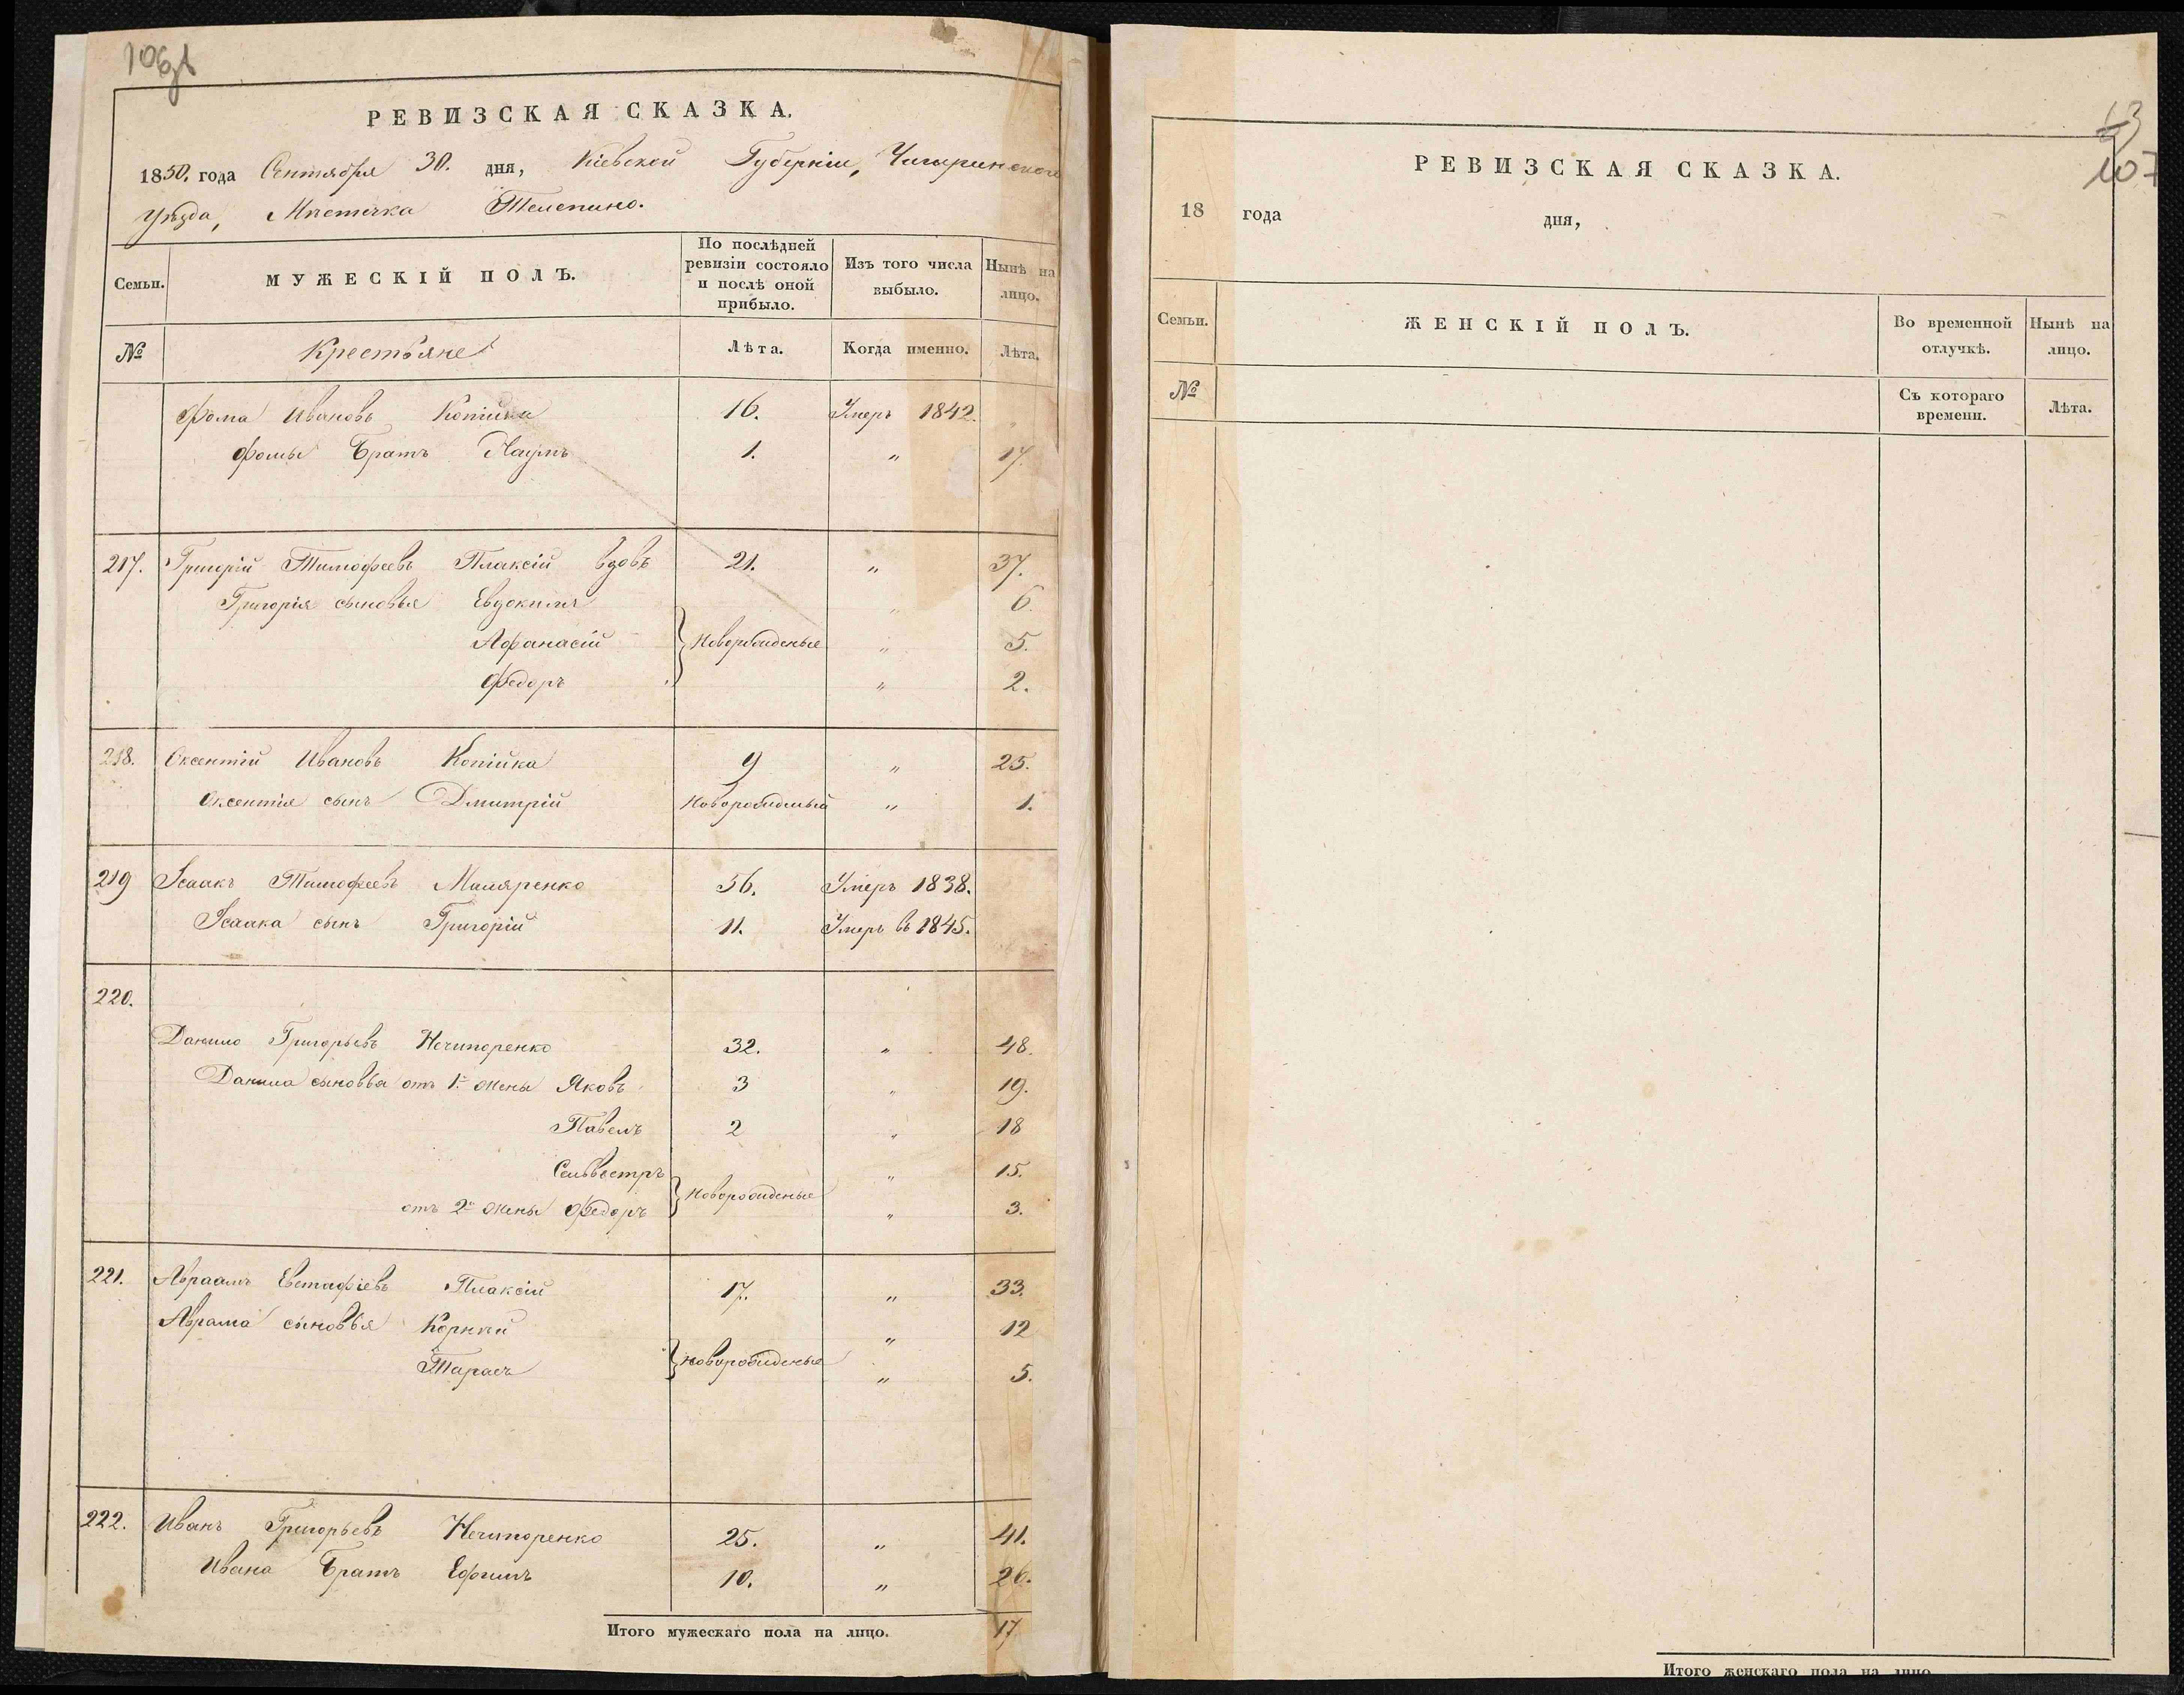 106зв
РЕВИЗСКАЯ СКАЗКА.
1850. года Сентября 30. дня, Кіевской Губерніи, Чигиринскаго
уѣзда, Мѣстечка Телепино.
Семьи. МУЖЕСКІЙ ПОЛЪ. По послѣдней ревизіи состояло и послѣ оной прибыло. Изъ того числа выбыло. Нынѣ на лицо.
№ Крестьяне Лѣта. Когда именно. Лѣта.
Фома Ивановъ Копійка 16. Умеръ 1842.
Фомы Братъ Наумъ 1. " 17.
217. Григорій Тимофеевъ Плаксій вдовъ 21. " 37.
Григорія сыновья Евдокимъ " 6.
Афанасій } Новорожденые " 5.
Федоръ " 2.
218. Оксентій Ивановъ Копійка 9 " 25.
Оксентія сынъ Дмитрій Новорожденый " 1.
219 Ісаакъ Тимофеевъ Маляренко 56. Умеръ 1838.
Ісаака сынъ Григорій 11. Умеръ въ 1845.
220.
Данило Григорьевъ Нечипоренко 32. " 48.
Данила сыновья отъ 1й жены Яковъ 3 " 19.
Павелъ 2 " 18
Сильвестръ " 15.
} Новорожденые
отъ 2й жены Федоръ " 3.
221. Авраамъ Евстафіевъ Плаксій 17. " 33.
Аврама сыновья Корній " 12
Тарасъ } новорожденые " 5.
222. Иванъ Григорьевъ Нечипоренко 25. " 41.
Ивана Братъ Ефимъ 10. " 26.
Итого мужескаго пола на лицо. 17
63
107
РЕВИЗСКАЯ СКАЗКА.
18 года дня,
Семьи. ЖЕНСКІЙ ПОЛЪ. Во временной отлучкѣ. Нынѣ на лицо.
№ Съ котораго времени. Лѣта.
Итого женскаго пола на лицо